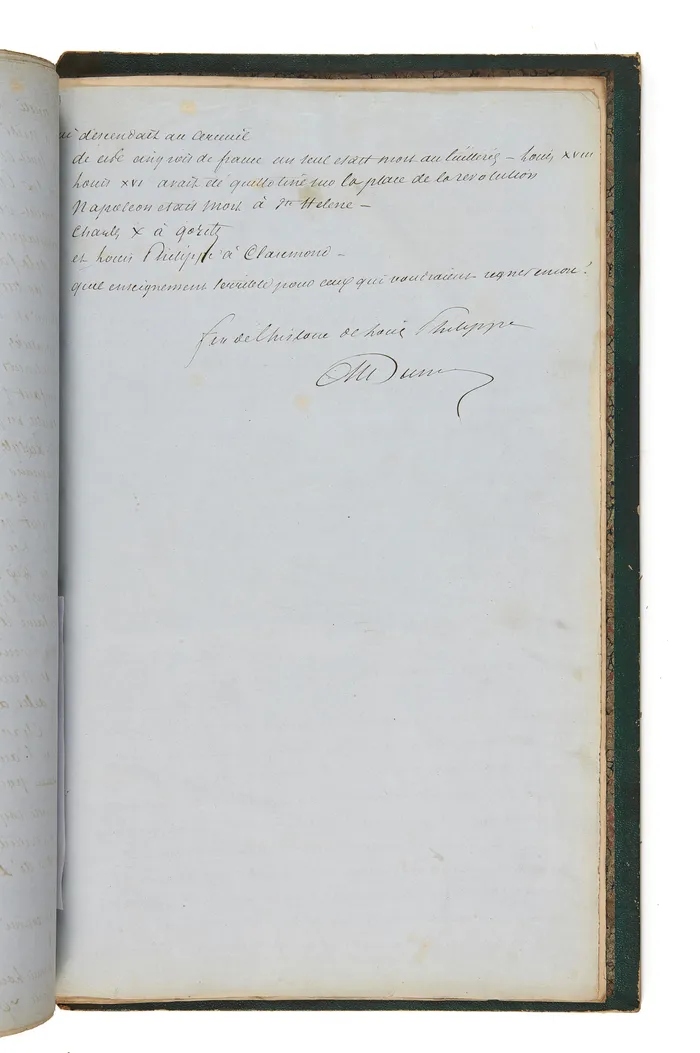 qui descendait au cercueil
de ces cinq rois de france un seul etait mort au tuileries – Louis XVIII
Louis XVI avait été guillotiné sur la place de la revolution
Napoléon etait mort à Ste Helene –
Charles X à goritz
et Louis Philippe à Claremont –
quel enseignement terrible pour ceux qui voudraient regner encore !
fin de l'histoire de Louis Philippe
Dumas